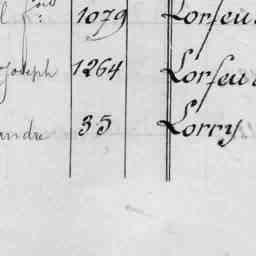 fils 1079 Lorfeu
Joseph 1264 Lorfeu
andre 35 Lorry